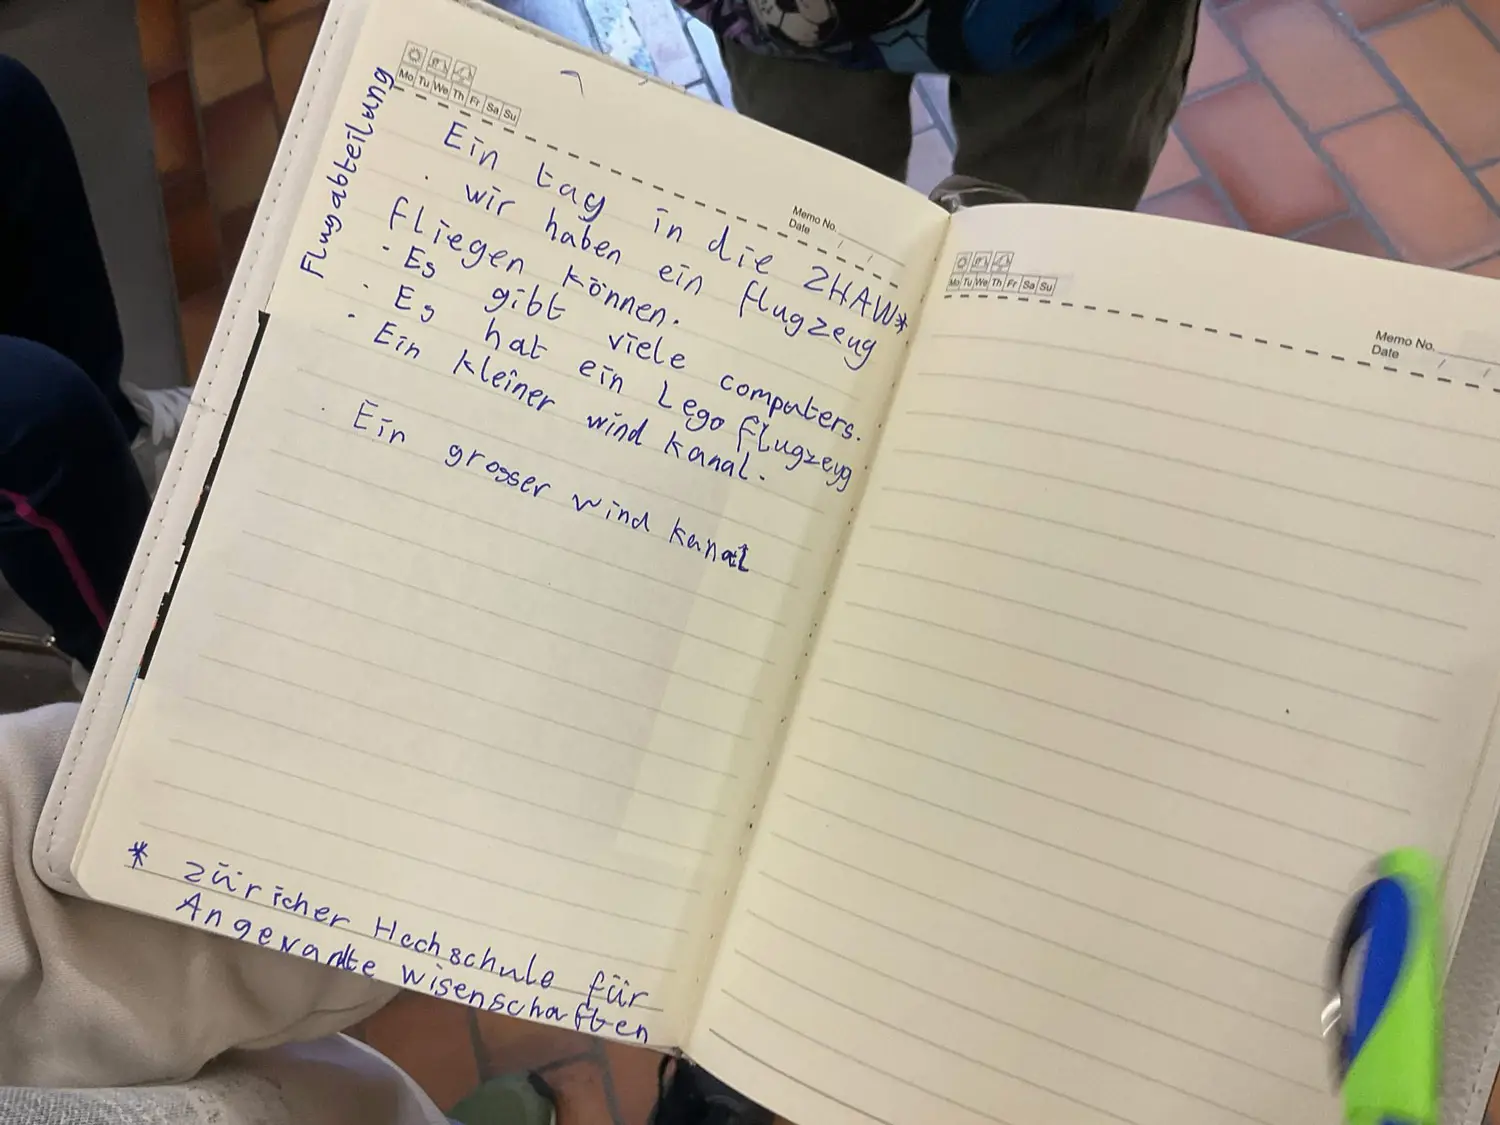 Mo Tu We Th Fr Sa Su
Memo No.
Date / /
Flugabteilung
Ein tag in die ZHAW*
· wir haben ein flugzeug
fliegen können.
· Es gibt viele computers.
· Es hat ein Lego flugzeug
· Ein kleiner wind kanal.
· Ein grosser wind kanal
* züricher Hochschule für
Angewandte wisenschaften
Mo Tu We Th Fr Sa Su
Memo No.
Date / /